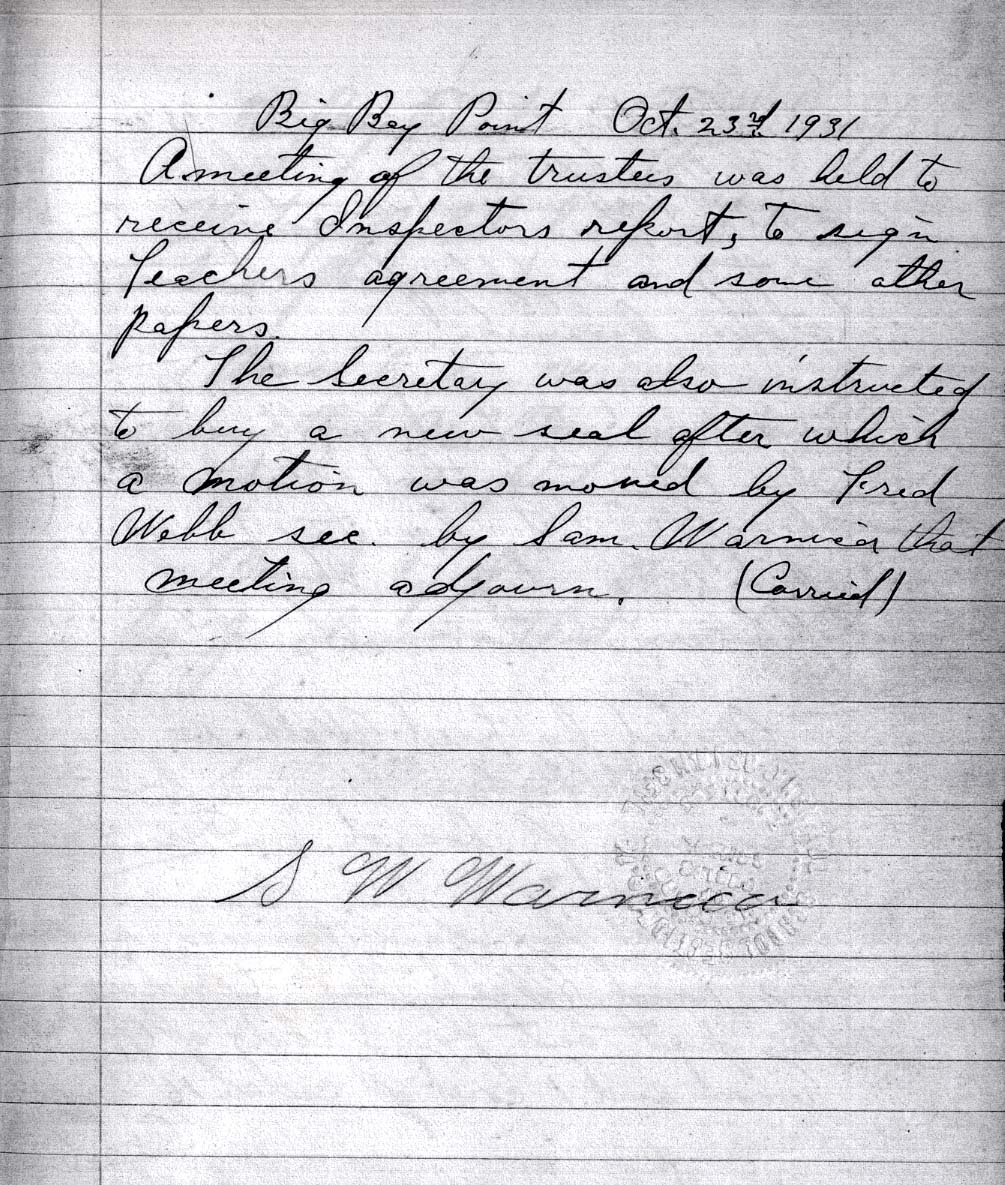 Big Bay Point Oct. 23rd 1931
A meeting of the trustees was held to
receive Inspectors report, to sign
Teachers agreement and some other
papers.
The Secretary was also instructed
to buy a new seal after which
a motion was moved by Fred
Webb sec. by Sam. Warnica that
meeting adjourn. (Carried)
S W Warnica